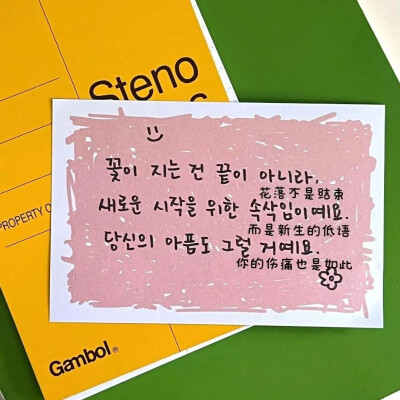 Steno
PROPERTY O
꽃이 지는 건 끝이 아니라,
花落不是结束
새로운 시작을 위한 속삭임이예요.
而是新生的低语
당신의 아픔도 그럴 거예요.
你的伤痛也是如此
Gambol®